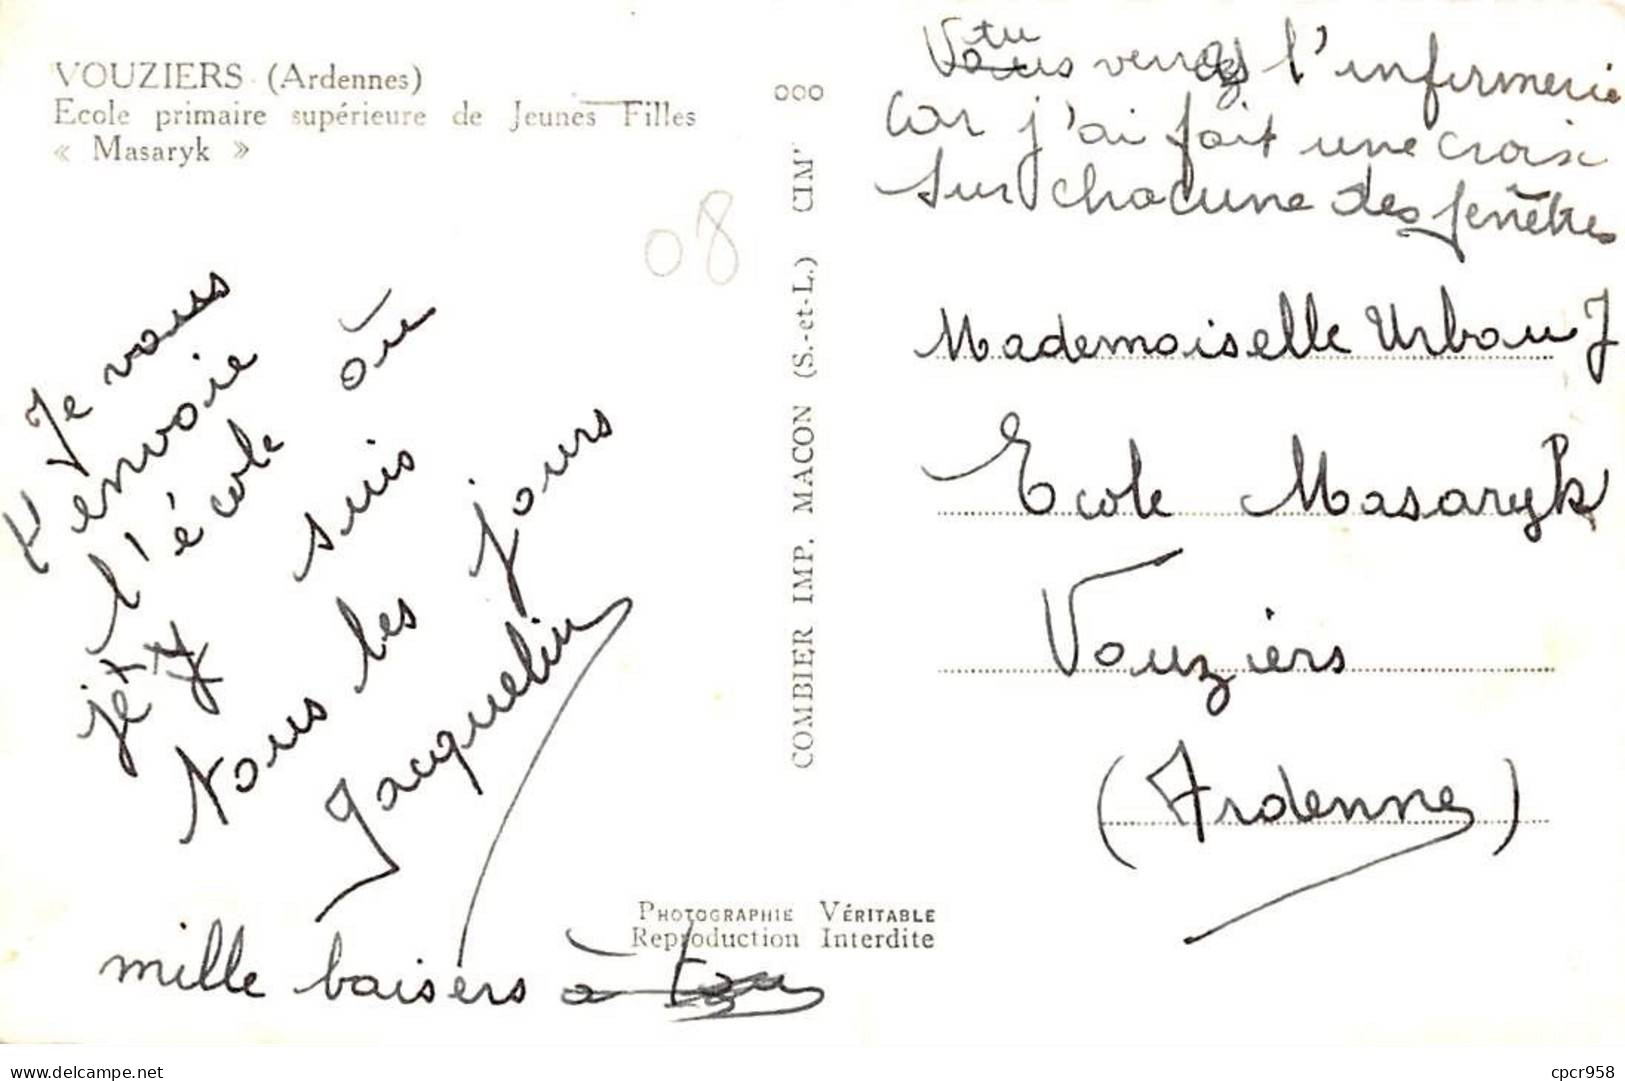 VOUZIERS (Ardennes)
Ecole primaire supérieure de Jeunes Filles
« Masaryk »
08
Je vous
t'envoie
l'école où
je suis
tous les jours
Jacqueline
mille baisers à
COMBIER IMP. MACON (S.-et-L.) CIM
PHOTOGRAPHIE VÉRITABLE
Reproduction Interdite
tu
Vous verras l'infirmerie
car j'ai fait une croix
sur chacune des fenêtres
Mademoiselle Urbau J
Ecole Masaryk
Vouziers
(Ardennes)
cpcr958